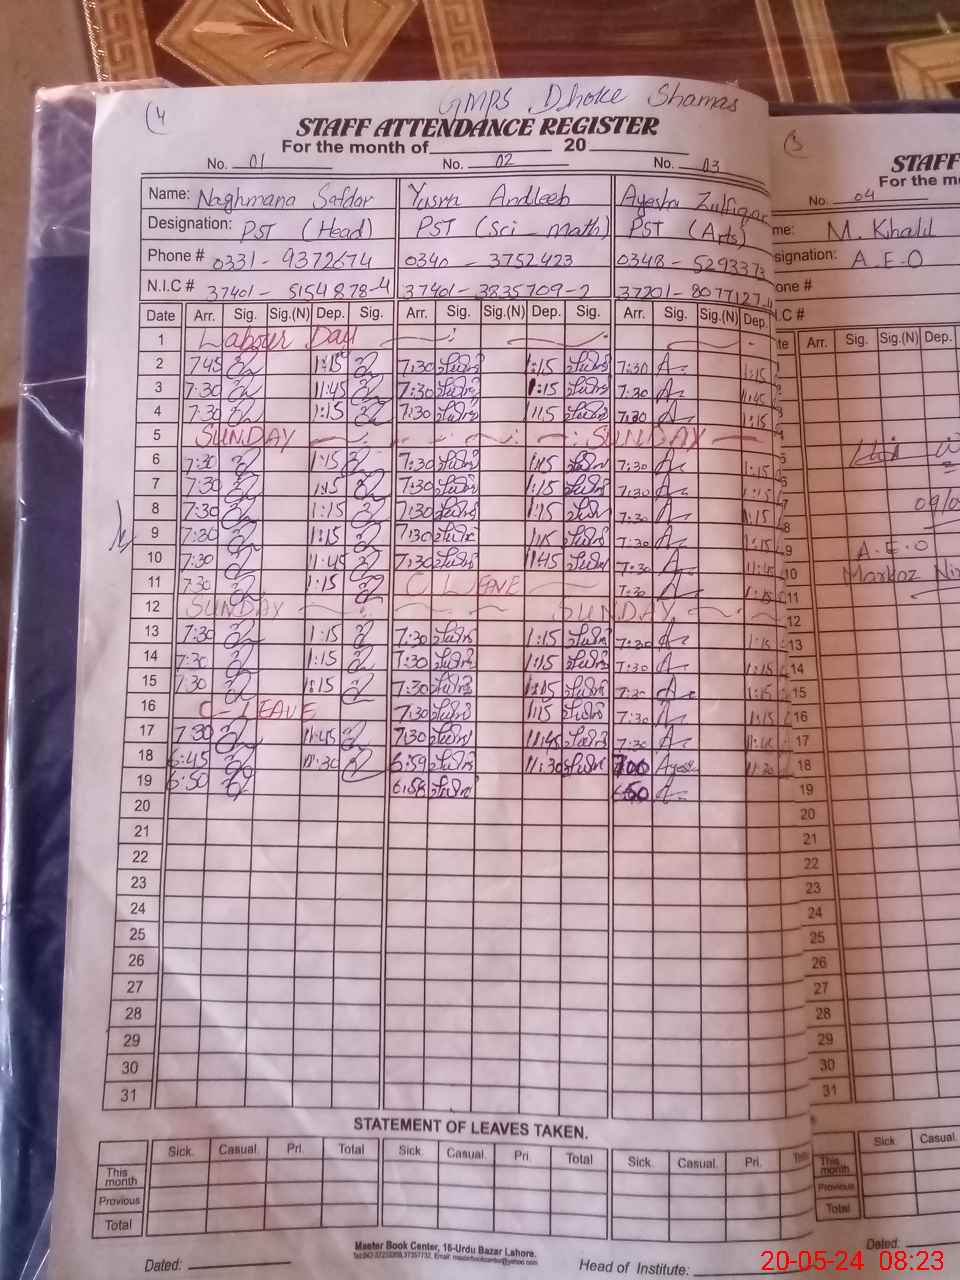 4
GMPS Dhoke Shamas
STAFF ATTENDANCE REGISTER
For the month of 20
No. 01 No. 02 No. 03
Name: Naghmana Safdar Yusra Andleeb Ayesha Zulfiqar
Designation: PST (Head) PST (Sci - math) PST (Arts)
Phone # 0331 - 9372674 0340 - 3752423 0348 - 5293373
N.I.C # 37401 - 5154878-4 37401 - 3835709-2 37201 - 8077127-4
Date Arr. Sig. Sig.(N) Dep. Sig. Arr. Sig. Sig.(N) Dep. Sig. Arr. Sig. Sig.(N) Dep.
1 Labour Day
2 7:45 1:15 7:30 1:15 7:30 1:15
3 7:30 11:45 7:30 1:15 7:30 11:45
4 7:30 1:15 7:30 1:15 7:30 1:15
5 SUNDAY SUNDAY
6 7:30 1:15 7:30 1:15 7:30 1:15
7 7:30 1:15 7:30 1:15 7:30 1:15
8 7:30 1:15 7:30 1:15 7:30 1:15
9 7:30 1:15 7:30 1:15 7:30 1:15
10 7:30 11:45 7:30 11:45 7:30 11:45
11 7:30 1:15 C LEAVE 7:30 1:15
12 SUNDAY SUNDAY
13 7:30 1:15 7:30 1:15 7:30 1:15
14 7:30 1:15 7:30 1:15 7:30 1:15
15 7:30 1:15 7:30 1:15 7:30 1:15
16 C-LEAVE 7:30 1:15 7:30 1:15
17 7:30 11:45 7:30 11:45 7:30
18 6:45 11:30 6:59 11:30 7:00 Ayesha 11:30
19 6:50 6:58 6:50
20
21
22
23
24
25
26
27
28
29
30
31
STATEMENT OF LEAVES TAKEN.
Sick. Casual. Pri. Total Sick. Casual. Pri. Total Sick. Casual. Pri.
This month
Previous
Total
Master Book Center, 16-Urdu Bazar Lahore.
Dated: Head of Institute:
STAFF
For the mo
No. 04
me: M. Khalil
signation: A.E.O
one #
I.C #
te Arr. Sig. Sig.(N) Dep.
A.E.O
Markaz
12
13
14
15
16
17
18
19
20
21
22
23
24
25
26
27
28
29
30
31
Sick. Casual.
This month
Previous
Total
Dated:
20-05-24 08:23